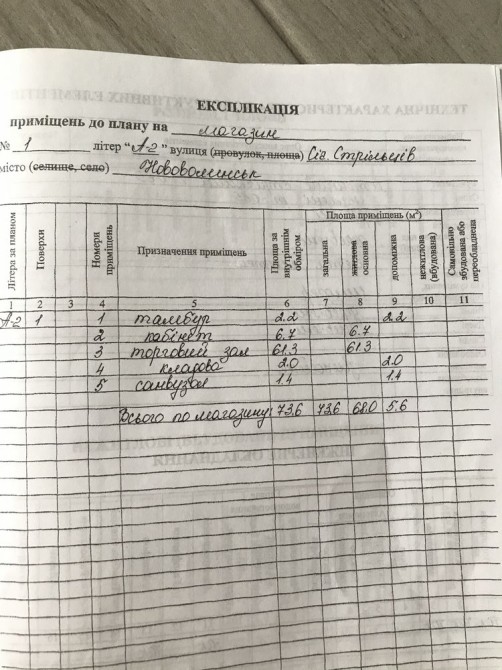 ЕКСПЛІКАЦІЯ
приміщень до плану на магазин
№ 1 літер "А-2" вулиця (провулок, площа) Січ. Стрільців
місто (селище, село) Нововолинськ
Літера за планом Поверхи Номери приміщень Призначення приміщень Площа за внутрішнім обміром Площа приміщень (м²) загальна житлова основна допоміжна нежитлова (вбудована) Самовільно збудована або переобладнана
1 2 3 4 5 6 7 8 9 10 11
А-2 1 1 тамбур 2.2 2.2
2 кабінет 6.7 6.7
3 торговий зал 61.3 61.3
4 кладова 2.0 2.0
5 санвузол 1.4 1.4
Всього по магазину: 73.6 73.6 68.0 5.6